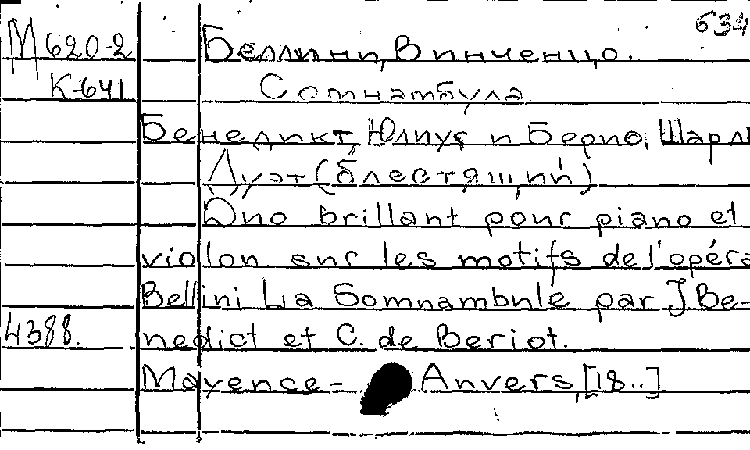 М 620-2 Беллини, Винченцо. 634
К-641 Сомнамбула
Бенедикт, Юлиус и Берио, Шарл
Дуэт (блестящий)
Duo brillant pour piano et
violon sur les motifs de l'opéra
Bellini La Somnambule par J Be-
4388. nedict et C. de Beriot.
Mayence - Anvers, [18..]